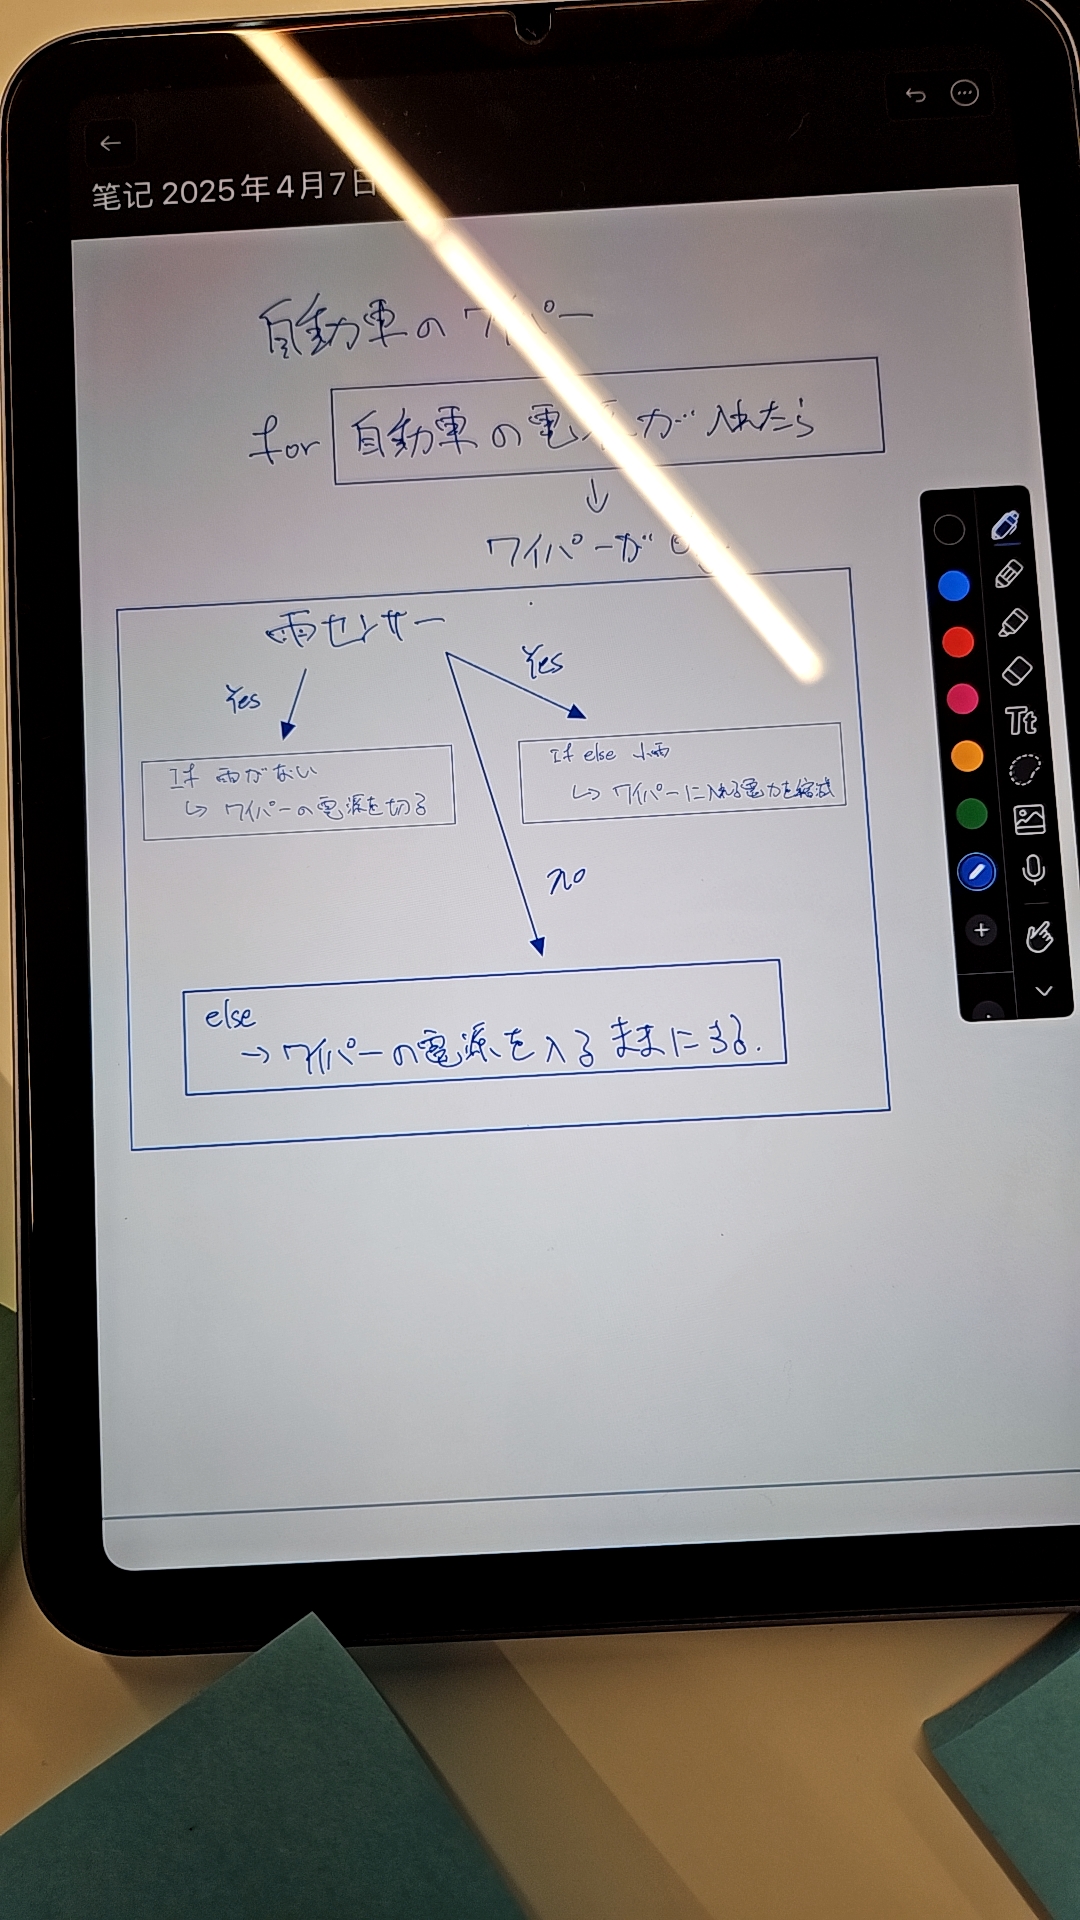 笔记 2025年4月7日
自動車の ワイパー
for 自動車の電源が入れたら
↓
ワイパーが
雨センサー
Yes
Yes
If 雨がない
↳ ワイパーの電源を切る
If else 小雨
↳ ワイパーに入れる電力を縮減
no
else
→ワイパーの電源を入るままにする.
Tt